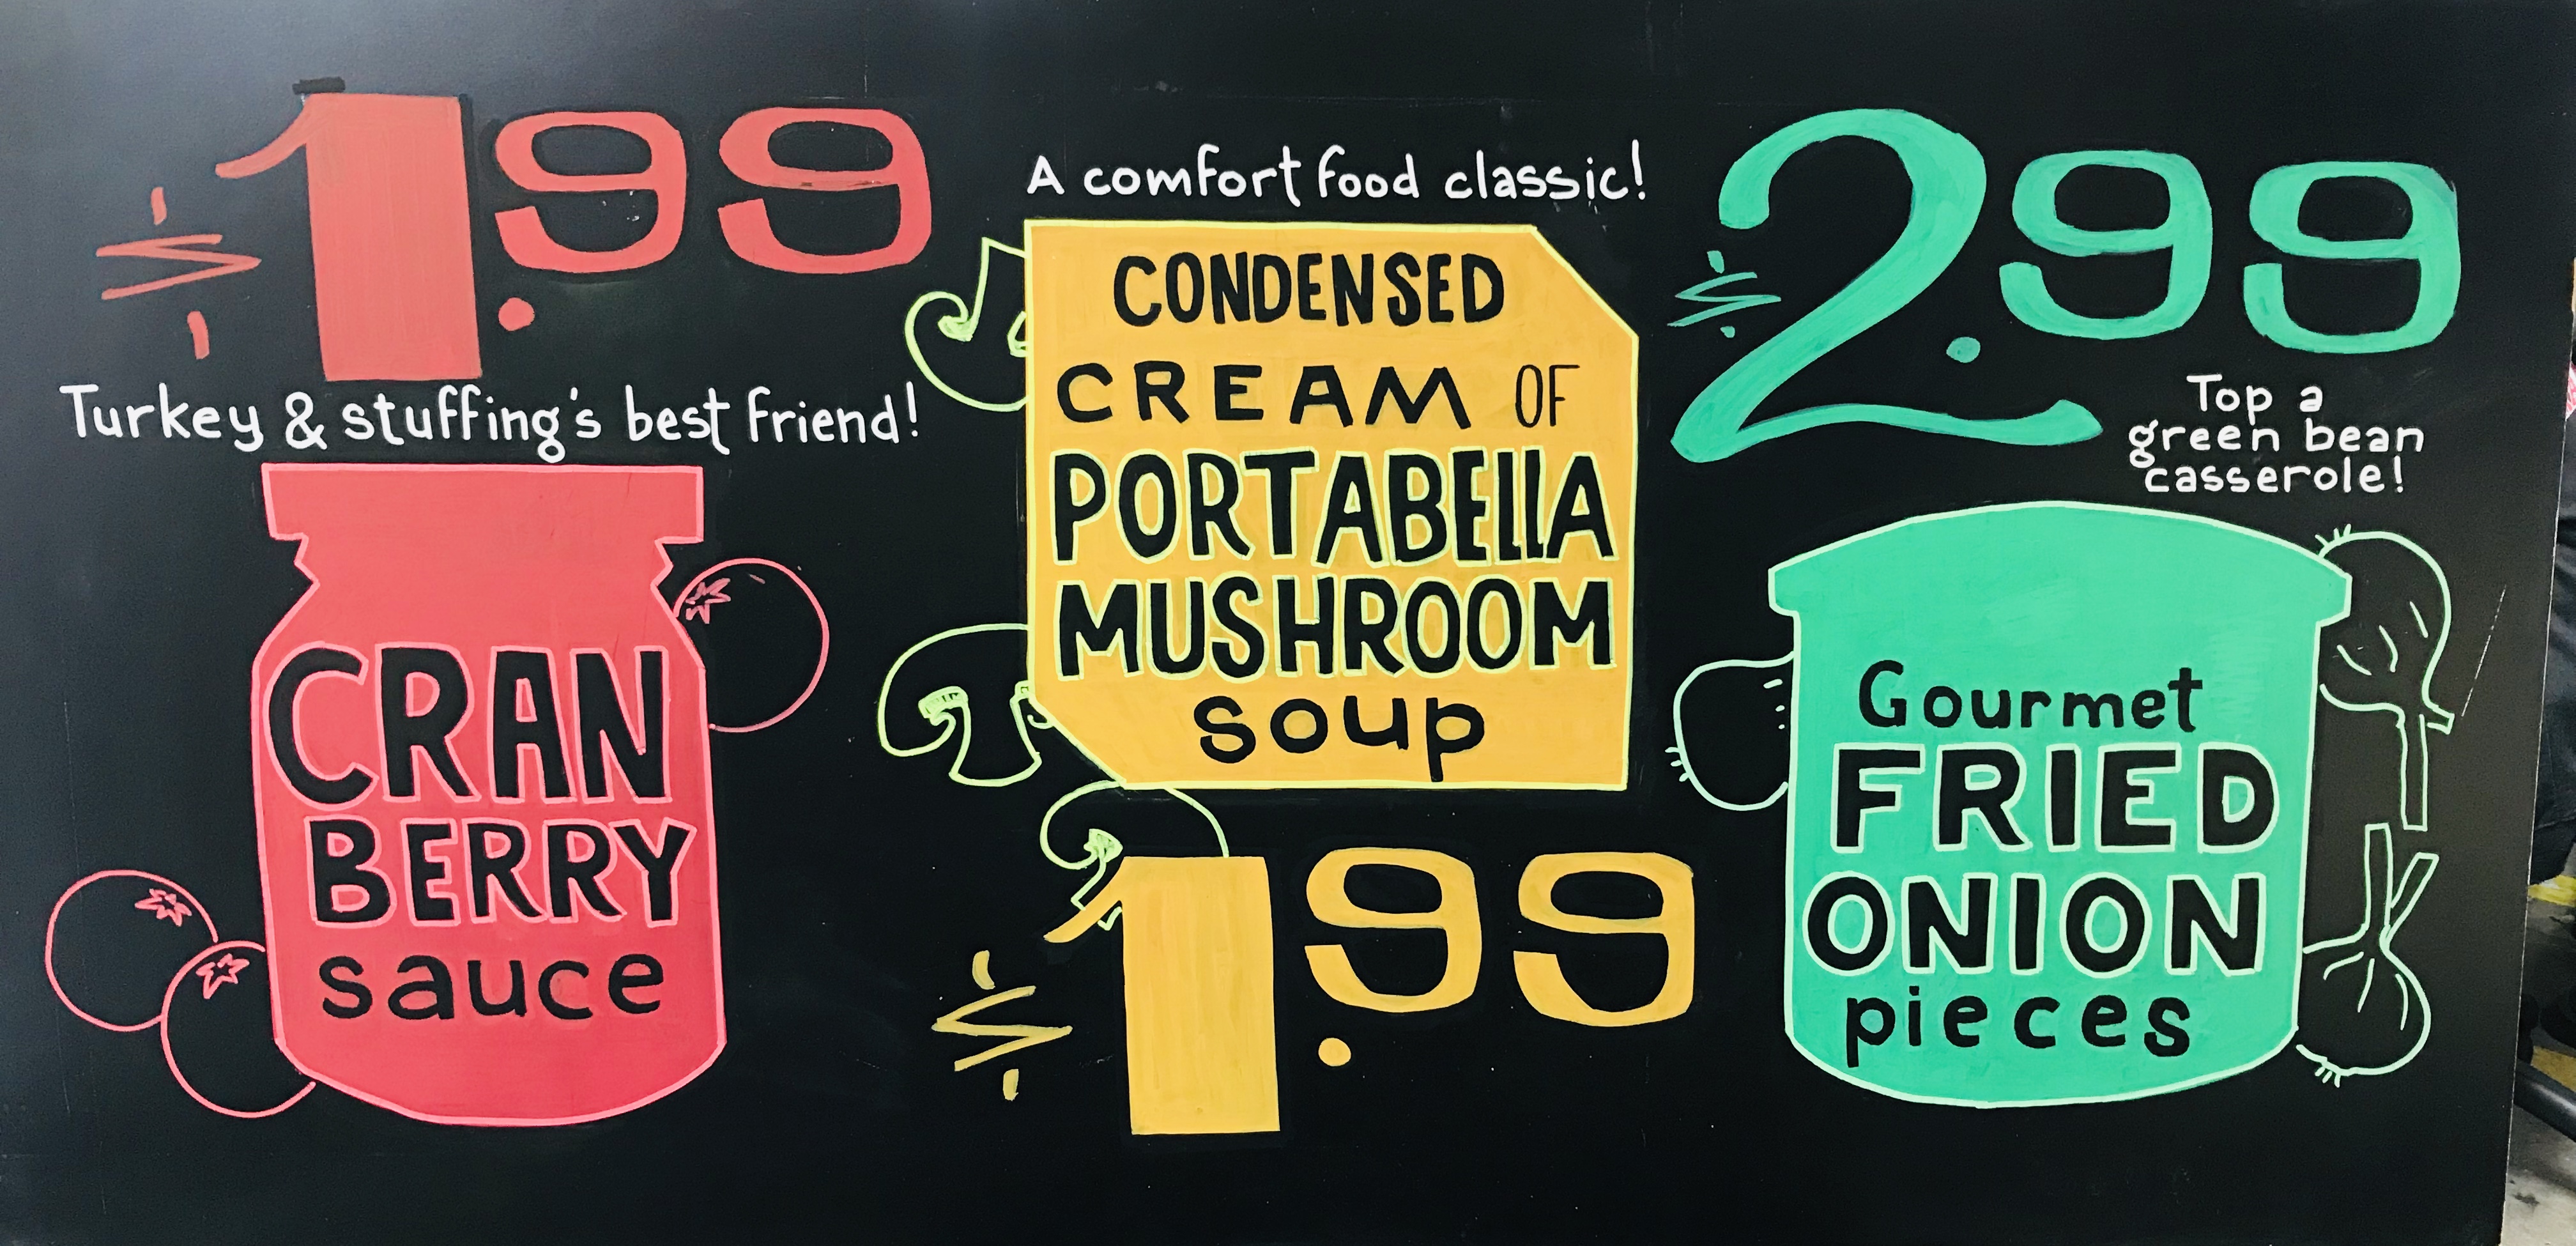 $1.99
Turkey & stuffing's best friend!
CRAN
BERRY
sauce
A comfort food classic!
CONDENSED
CREAM OF
PORTABELLA
MUSHROOM
soup
$1.99
$2.99
Top a
green bean
casserole!
Gourmet
FRIED
ONION
pieces